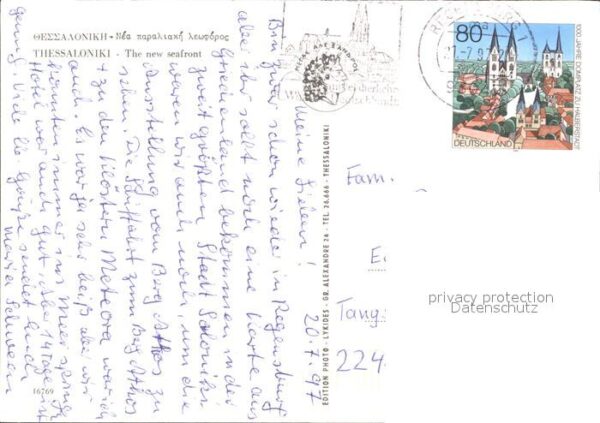 ΘΕΣΣΑΛΟΝΙΚΗ - Νέα παραλιακή λεωφόρος
THESSALONIKI - The new seafront
20.7.97
Meine Lieben!
Bin zwar schon wieder in Regensburg
aber ihr sollt noch eine Karte aus
Griechenland bekommen in der
zweit größten Stadt Saloniki
waren wir auch noch, um die
Ausstellung vom Berg Athos zu
sehen. Die Schiffahrt zum Berg Athos
u zu den Klöstern Meteora war ich
auch. Es war ja sehr heiß aber wir
konnten immer ins Meer springen
Hotel war auch gut. Aber 14 Tage ist
genug. Viele lb Grüße sendet Euch
Maria
16769
EDITION PHOTO - LYKIDES - GR. ALEXANDRE 26 - TEL. 26.666 - THESSALONIKI
80
1000 JAHRE DOMPLATZ ZU HALBERSTADT
DEUTSCHLAND
Fam.
Tang
224
privacy protection
Datenschutz